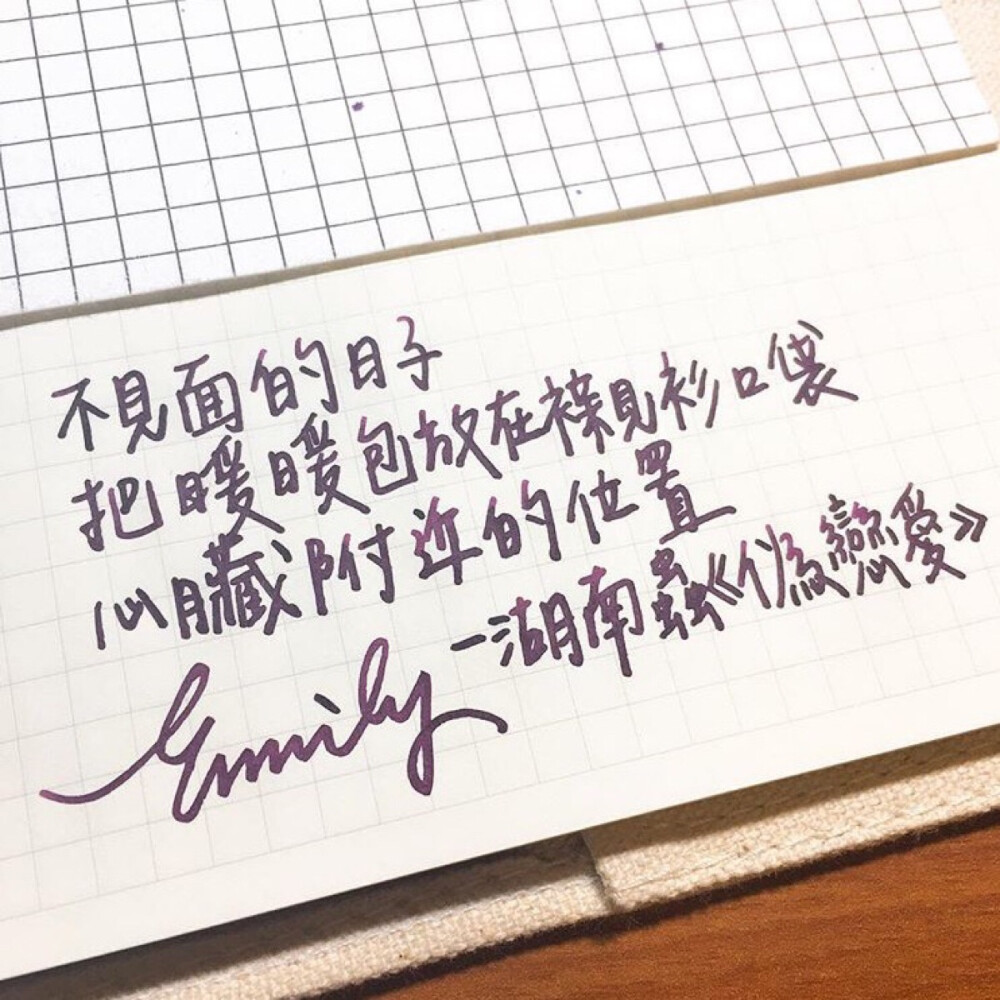 不見面的日子
把暖暖包放在襯衫口袋
心臟附近的位置
–湖南蟲《偽戀愛》
Emily